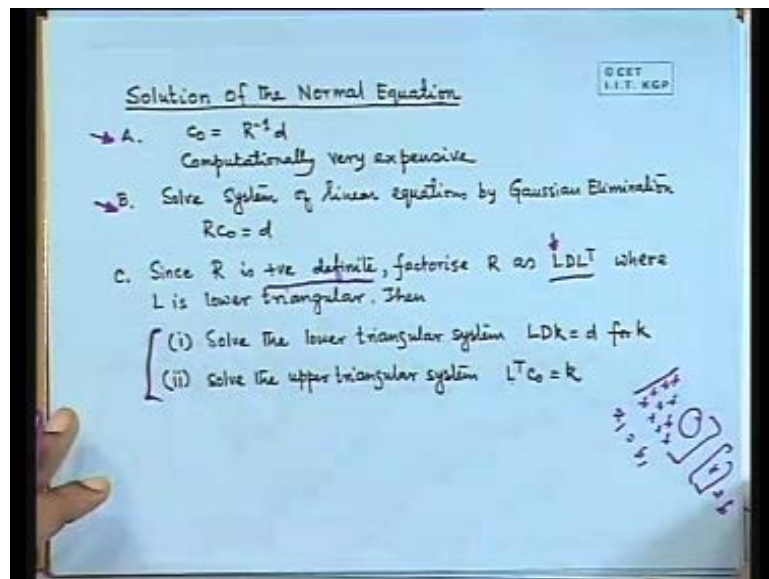 Solution of the Normal Equation
© CET
I.I.T. KGP
A. c₀ = R⁻¹d
Computationally very expensive
B. Solve System of linear equations by Gaussian Elimination
Rc₀ = d
C. Since R is +ve definite, factorise R as LDLᵀ where
L is lower triangular. Then
(i) Solve the lower triangular system LDk = d for k
(ii) solve the upper triangular system Lᵀc₀ = k